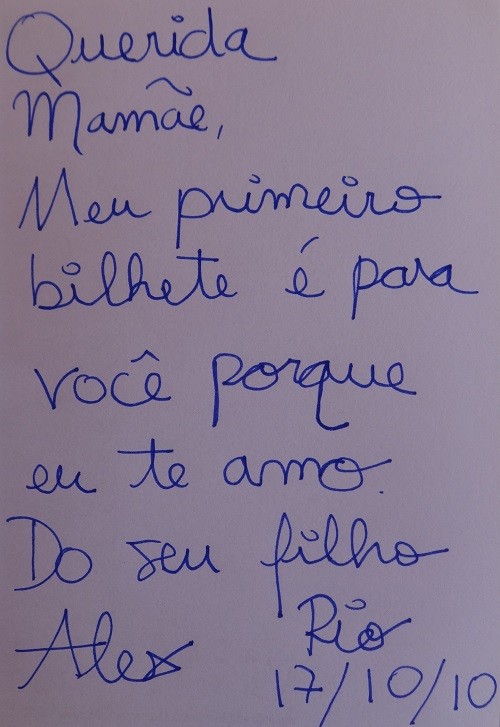 Querida
Mamãe,
Meu primeiro
bilhete é para
você porque
eu te amo.
Do seu filho
Alex Rio
17/10/10